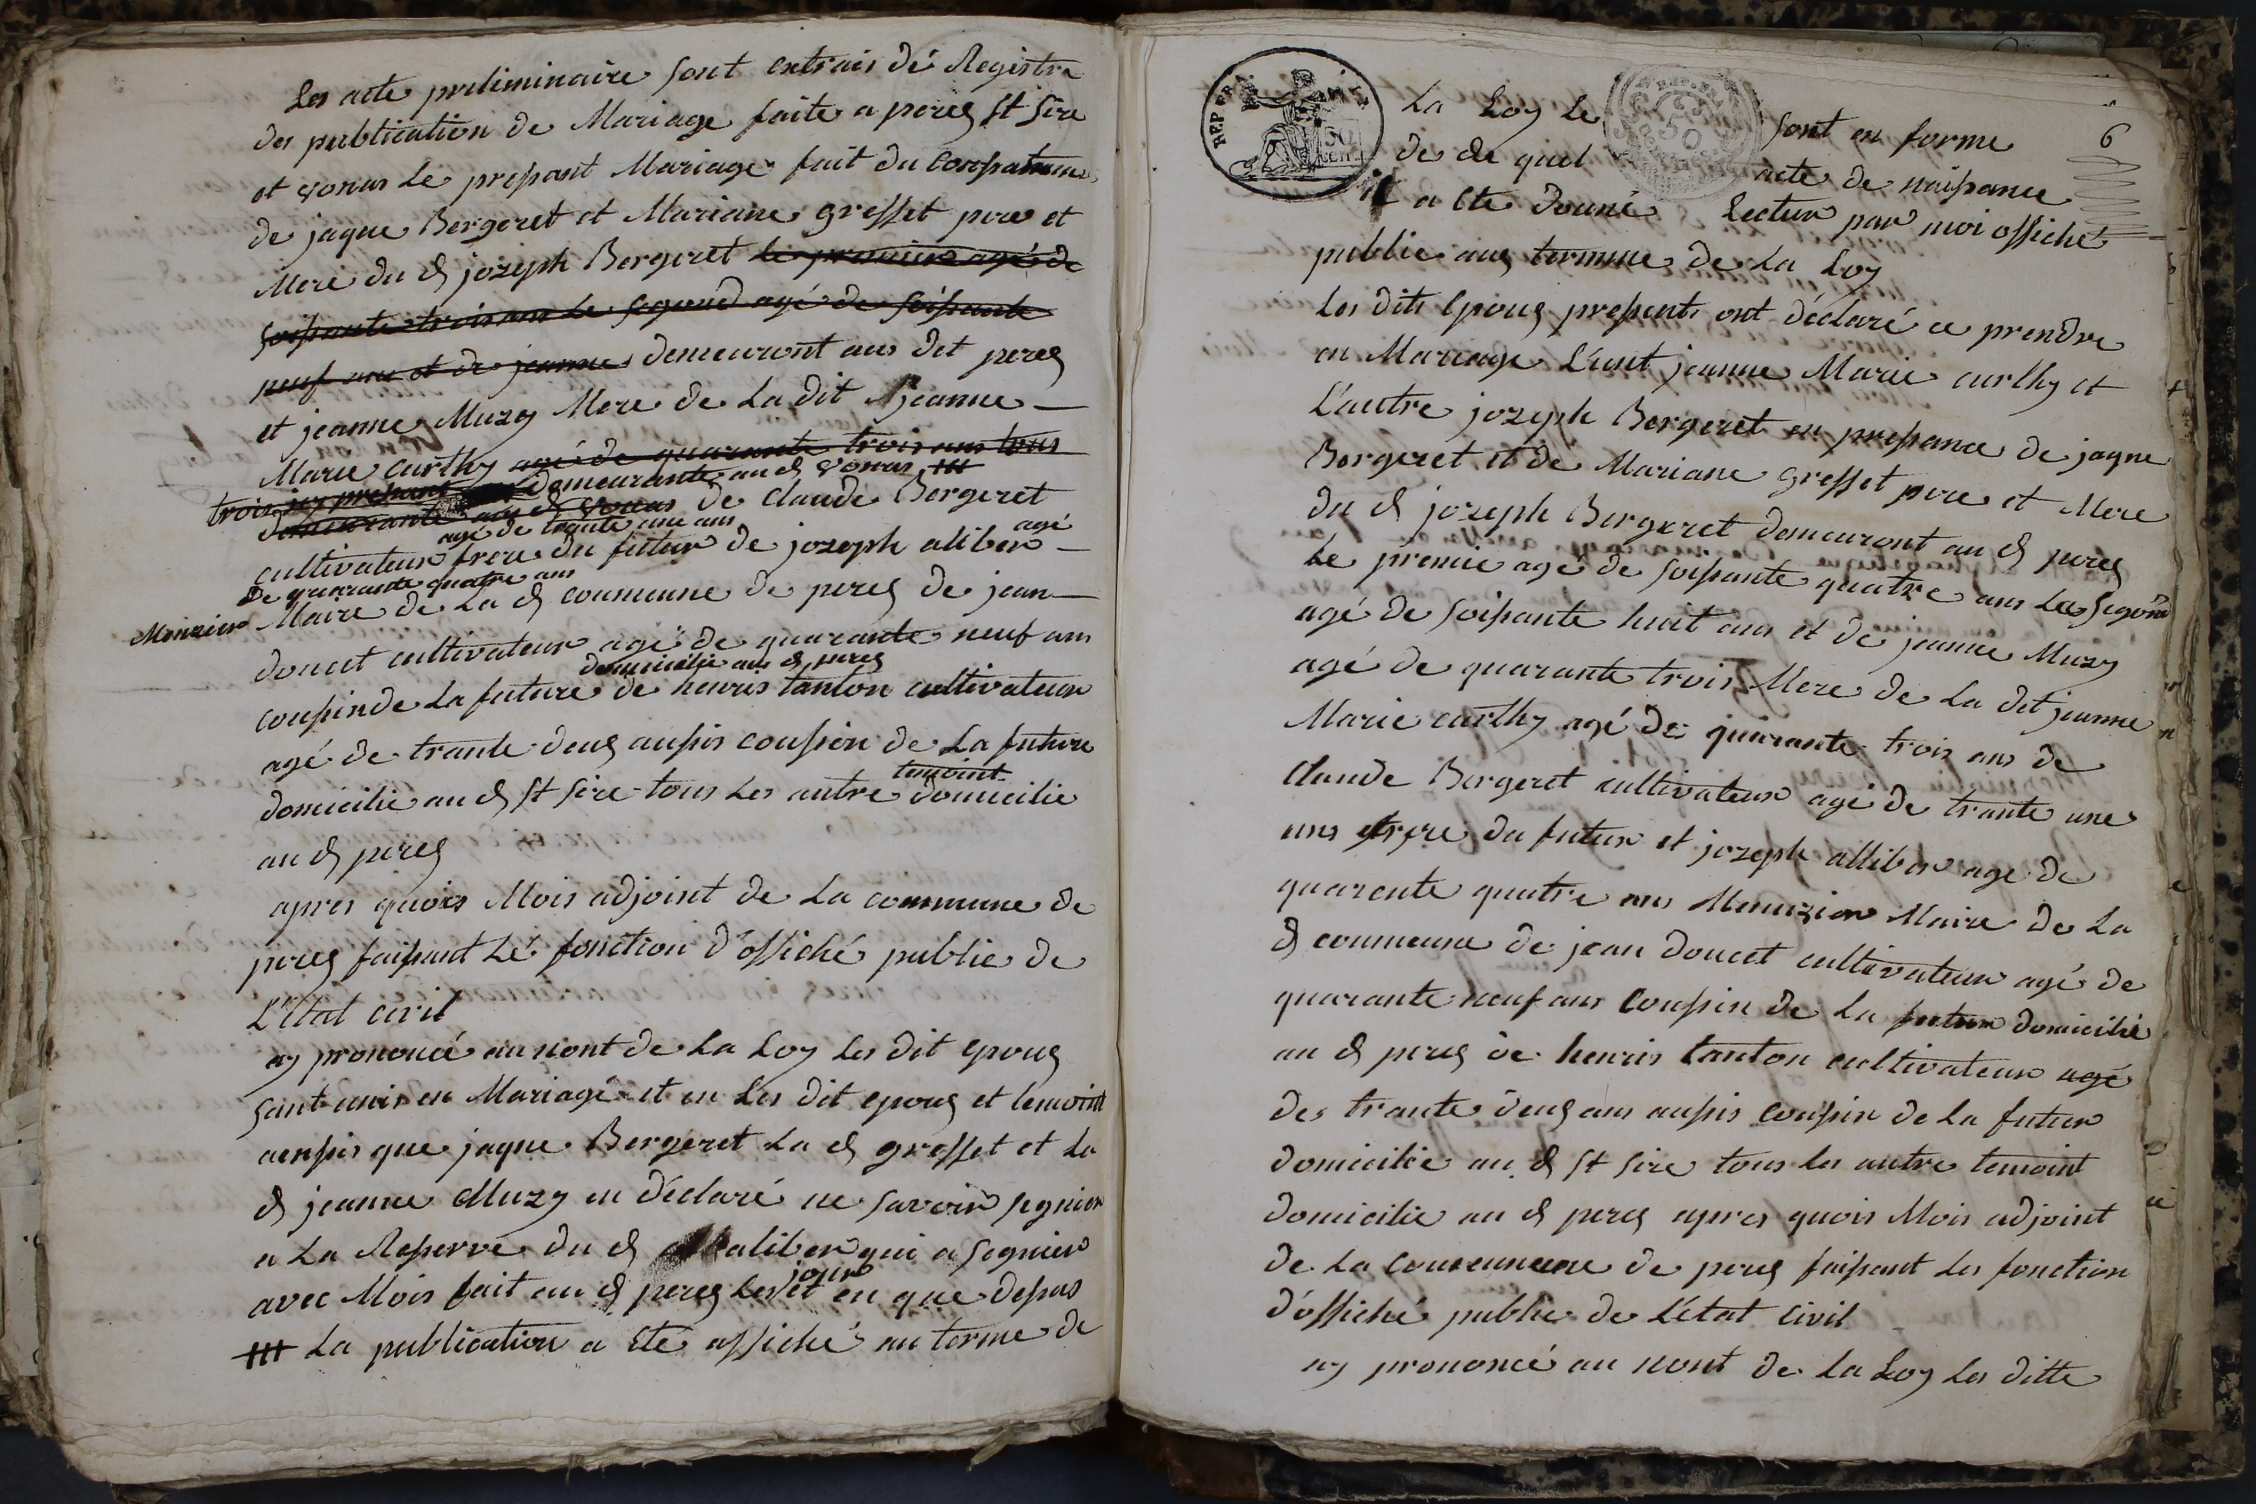 Les acte preliminaire sont extrais dé Registre
des publication de Mariage faite a perez st sire
et vonas le present Mariage fait du consantemen
de jaque Bergeret et Mariane gresset pere et
Mere du d joseph Bergeret le premier agé de
soisante trois ans le segond agé de soisante
neuf ans et de jeanne demeuront aus dit peres
et jeanne Muzy Mere de la dit jeanne
Marie curthy agé de quarante trois ans tous
trois icy present demeurante au d vonas
demeurante au d vonas de claude Bergeret
agé de trante une ans
cultivateur frere du futur de jozeph aliber agé
de quarante quatre ans
Menuzier Maire de la d commune de perez de jean
doucet cultivateur agé de quarante neuf ans
domicilie au d perez
cousin de la future de henris tanton cultivateur
agé de trante deus ausis cousin de la future
temoint
domicilie au d st sire tous les autre domicilie
au d perez
apres quois Mois adjoint de la commune de
perez faisant lé fonction d'offiché public de
L'Etat civil
ay prononcé au nont de la Loy les dit epous
sont unis en Mariage et en les dit epous et temoint
ausis que jaque Bergeret la d gresset et la
d jeanne Muzy en déclaré ne savoir segnier
a la Reserve du d aliber qui a segnier
jour
avec Mois fait au d perez les et en que desus
La publication a Eté affiché au terme de
REP FRA
50 CENT.
6
La Loy le sont en forme
de de quel acte de naisance
il a Ete donné Lecture par moi offiché
public aus termme de La Loy
Les dits Epous present ont déclaré ce prendre
en Mariage L'unt jeanne Marie curthy et
L'autre jozeph Bergeret en presance de jaque
Bergeret et de Mariane gresset pere et Mere
du d jozeph Bergeret demeuront au d perez
Le premie agé de soisante quatre ans Le segond
agé de soisante huit ans et de jeanne Muzy
agé de quarante trois Mere de La dit jeanne
Marie curthy agé de quarante trois ans de
Claude Bergeret cultivateur agé de trante une
ans frere du futur et jozeph alliber age de
quarente quatre ans Menuzier Maire de La
d commune de jean doucet cultivateur agé de
quarante neuf ans cousin de La futur domicilié
au d perez de henris tanton cultivateur agé
des trante deus ans ausis cousin de La futur
domicilie au d st sire tous les autre temoint
domicilie au d perez apres quois Mois adjoint
de La commune de perez faisant Les fonction
d'offiché public de L'état civil
ay prononcé au nont de La Loy Les ditte